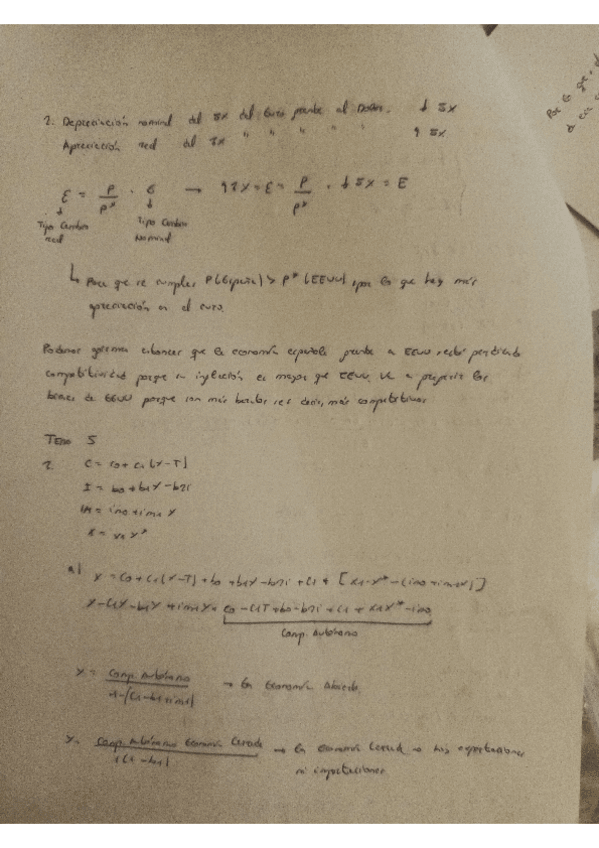 2. Depreciación nominal del 5% del Euro frente al Dólar. ↓ 5%
Apreciación real del 3% " " " " " ↑ 5%
ε = P/P* · E → ↑3% = ε = P/P* · ↓5% = E
Tipo Cambio real
Tipo Cambio Nominal
↳ Para que se cumpla P (España) > P* (EEUU), por lo que hay más
apreciación en el euro.
Podemos afirmar entonces que la economía española frente a EEUU está perdiendo
competitividad porque su inflación es mayor que EEUU. Va a preferir los
bienes de EEUU porque son más baratos, es decir, más competitivos
Tema 5
2. C = c0 + c1 (Y-T)
I = b0 + b1Y - b2i
IM = im0 + im1 Y
X = x1 Y*
a) Y = c0 + c1(Y-T) + b0 + b1Y - b2i + G + [x1·Y* - (im0 + im1Y)]
Y - c1Y - b1Y + im1Y = c0 - c1T + b0 - b2i + G + x1Y* - im0
Comp. Autónomo
Y = Comp. Autónomo / 1-(c1-b1+im1) → En Economía Abierta.
Y = Comp. Autónomo Economía Cerrada / 1(c1-b1) → En economía Cerrada → No exportaciones
ni importaciones